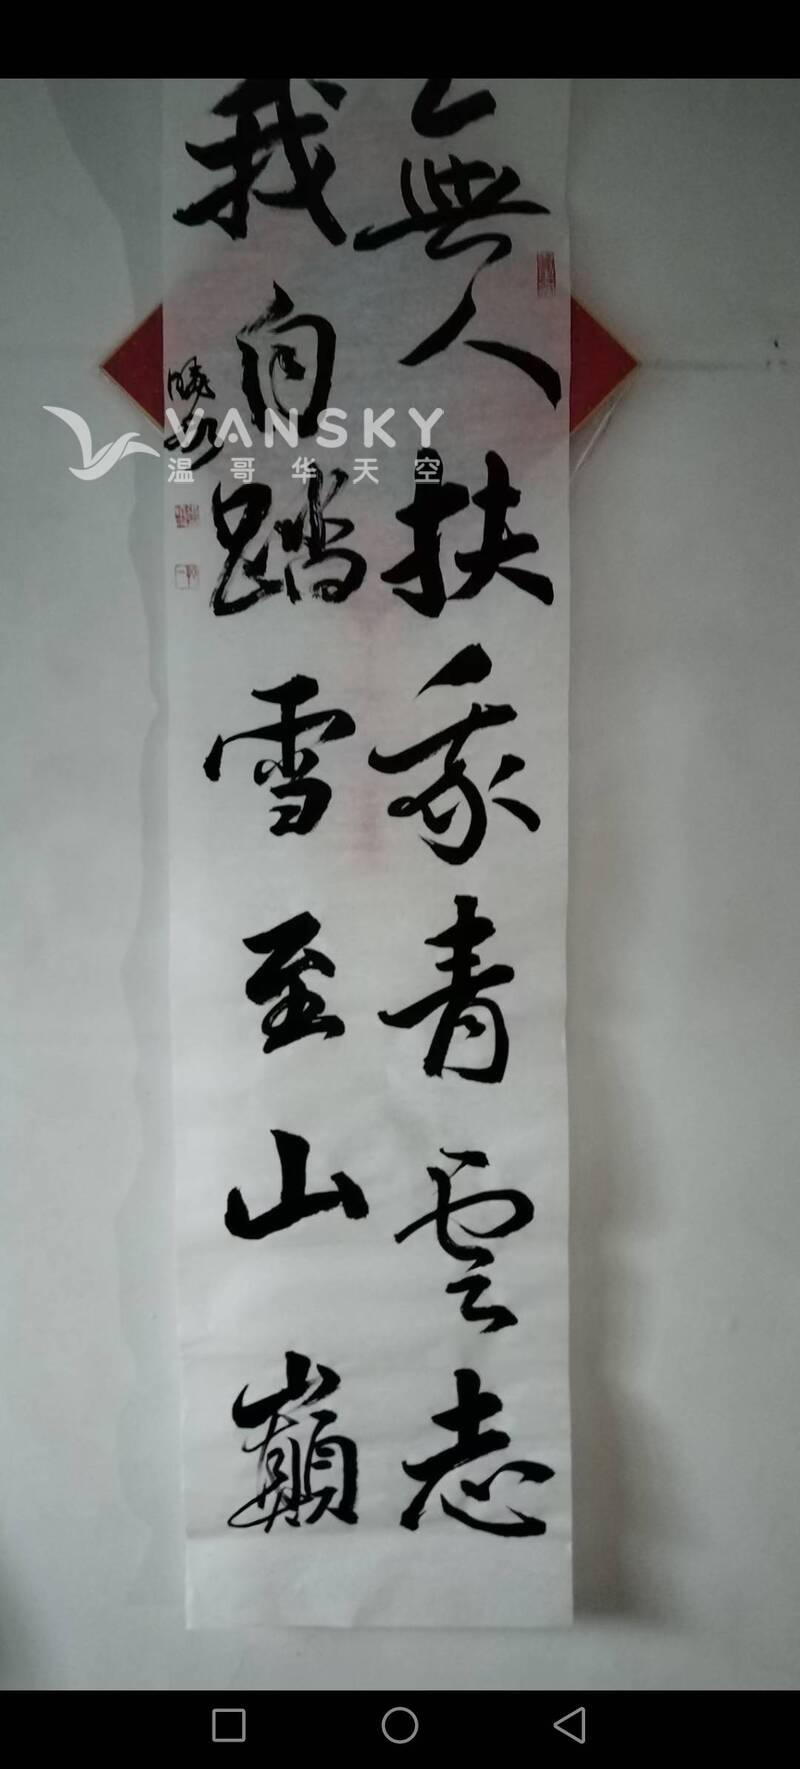 無人扶我青雲志
我自踏雪至山巔
VANSKY
温哥华天空